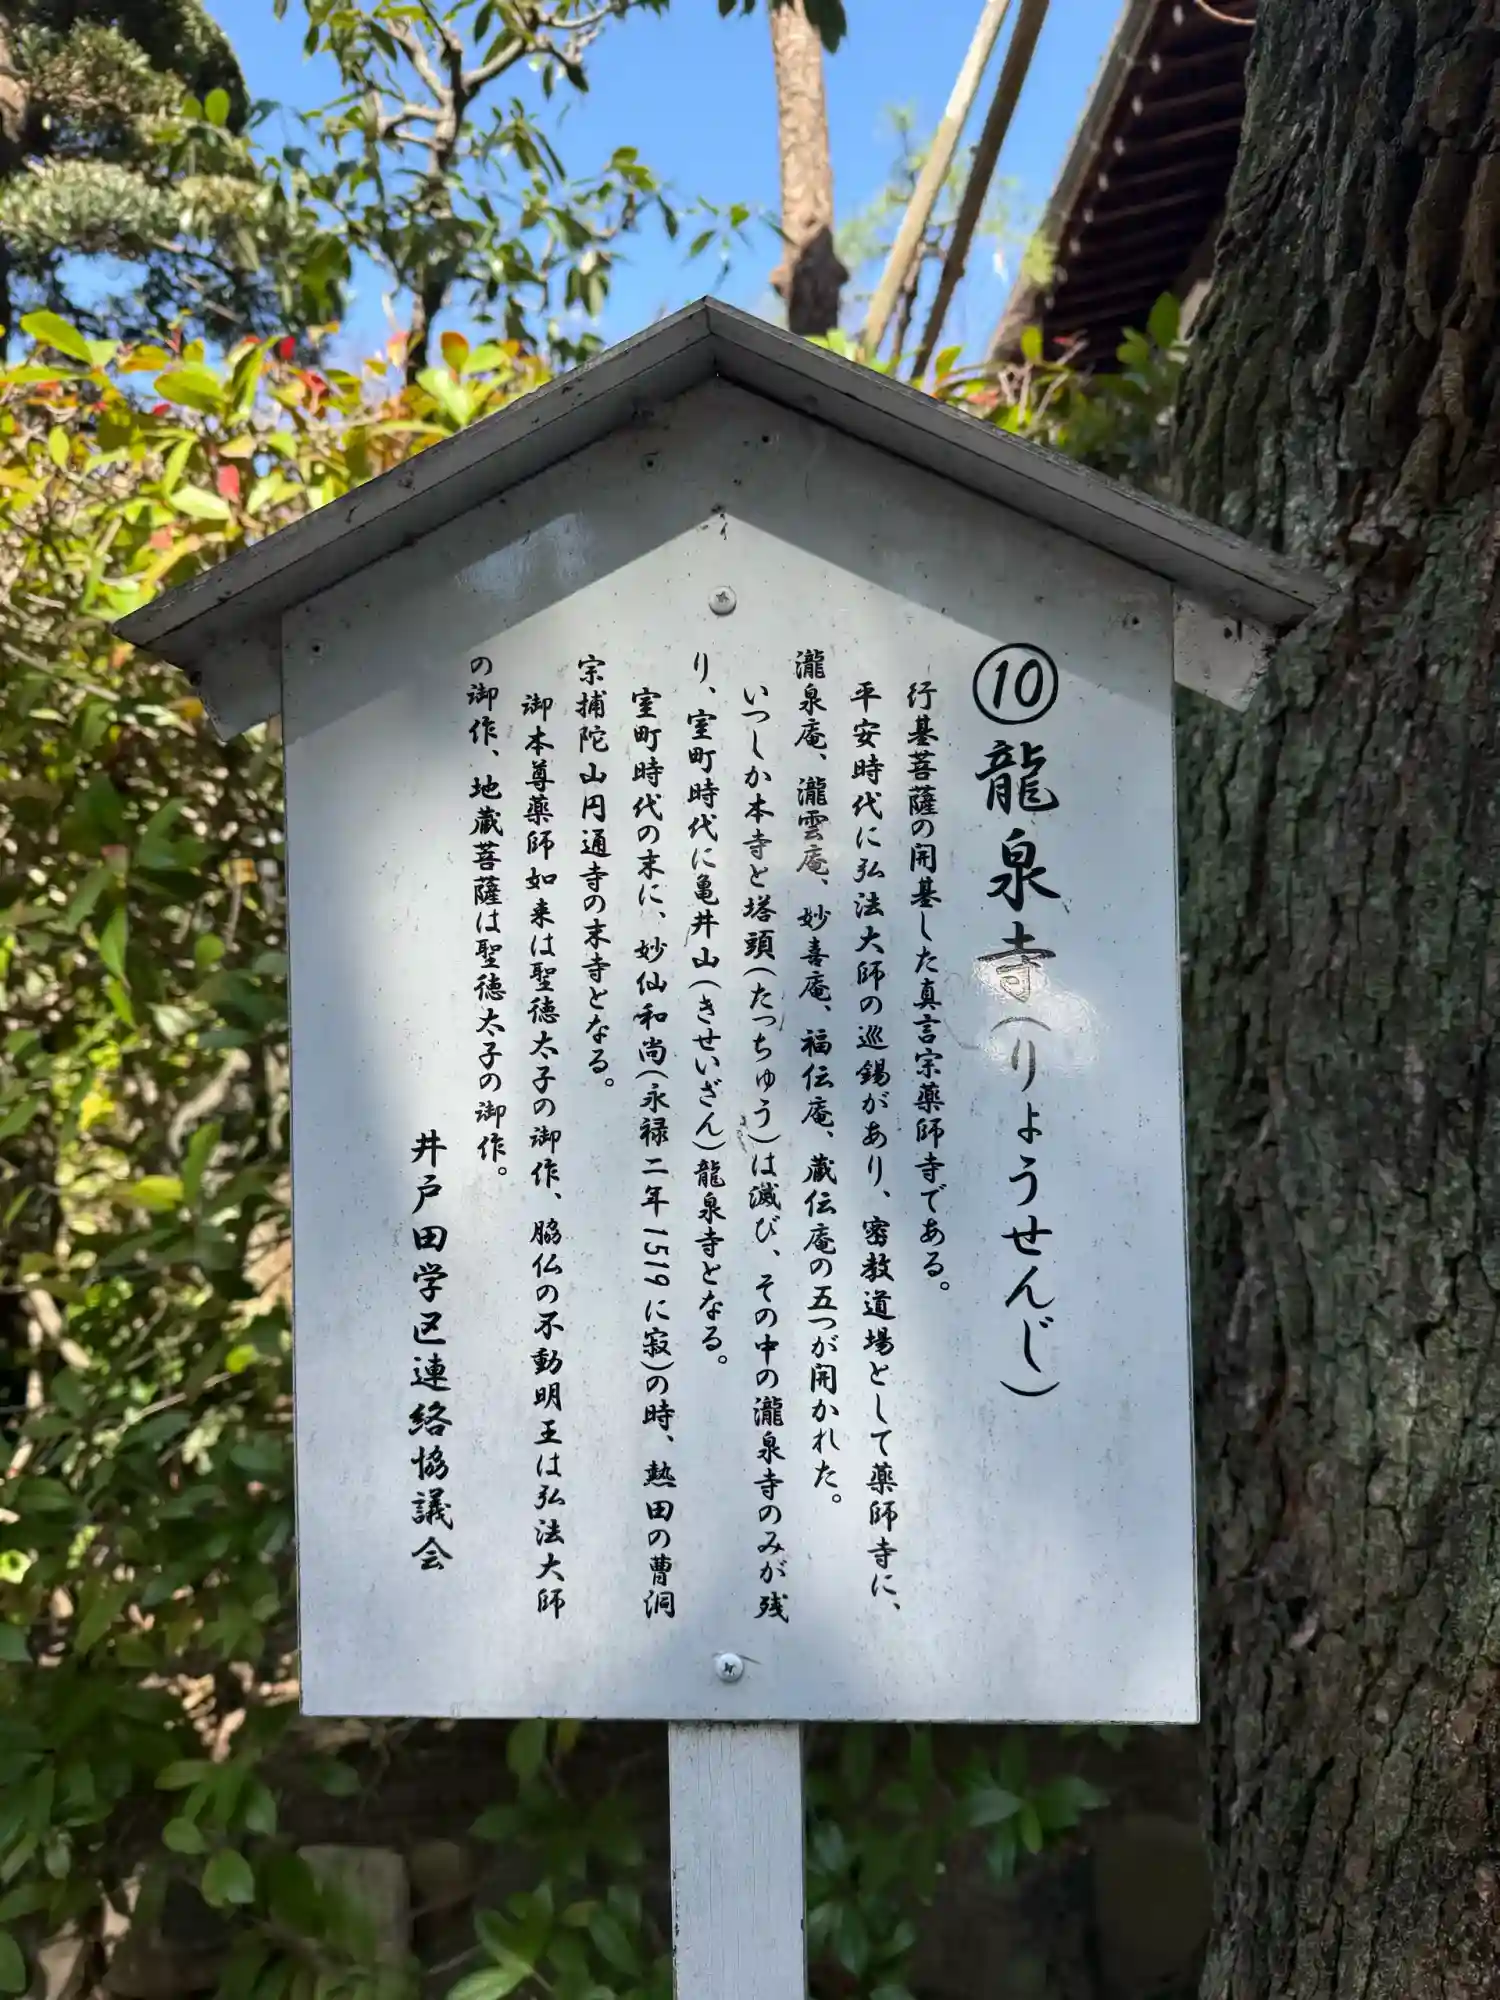 ⑩龍泉寺(りょうせんじ)
行基菩薩の開基した真言宗薬師寺である。
平安時代に弘法大師の巡錫があり、密教道場として薬師寺に、
瀧泉庵、瀧雲庵、妙喜庵、福伝庵、蔵伝庵の五つが開かれた。
いつしか本寺と塔頭(たっちゅう)は滅び、その中の瀧泉寺のみが残
り、室町時代に亀井山(きせいざん)龍泉寺となる。
室町時代の末に、妙仙和尚(永禄二年1519に寂)の時、熱田の曹洞
宗捕陀山円通寺の末寺となる。
御本尊薬師如来は聖徳太子の御作、脇仏の不動明王は弘法大師
の御作、地蔵菩薩は聖徳太子の御作。
井戸田学区連絡協議会